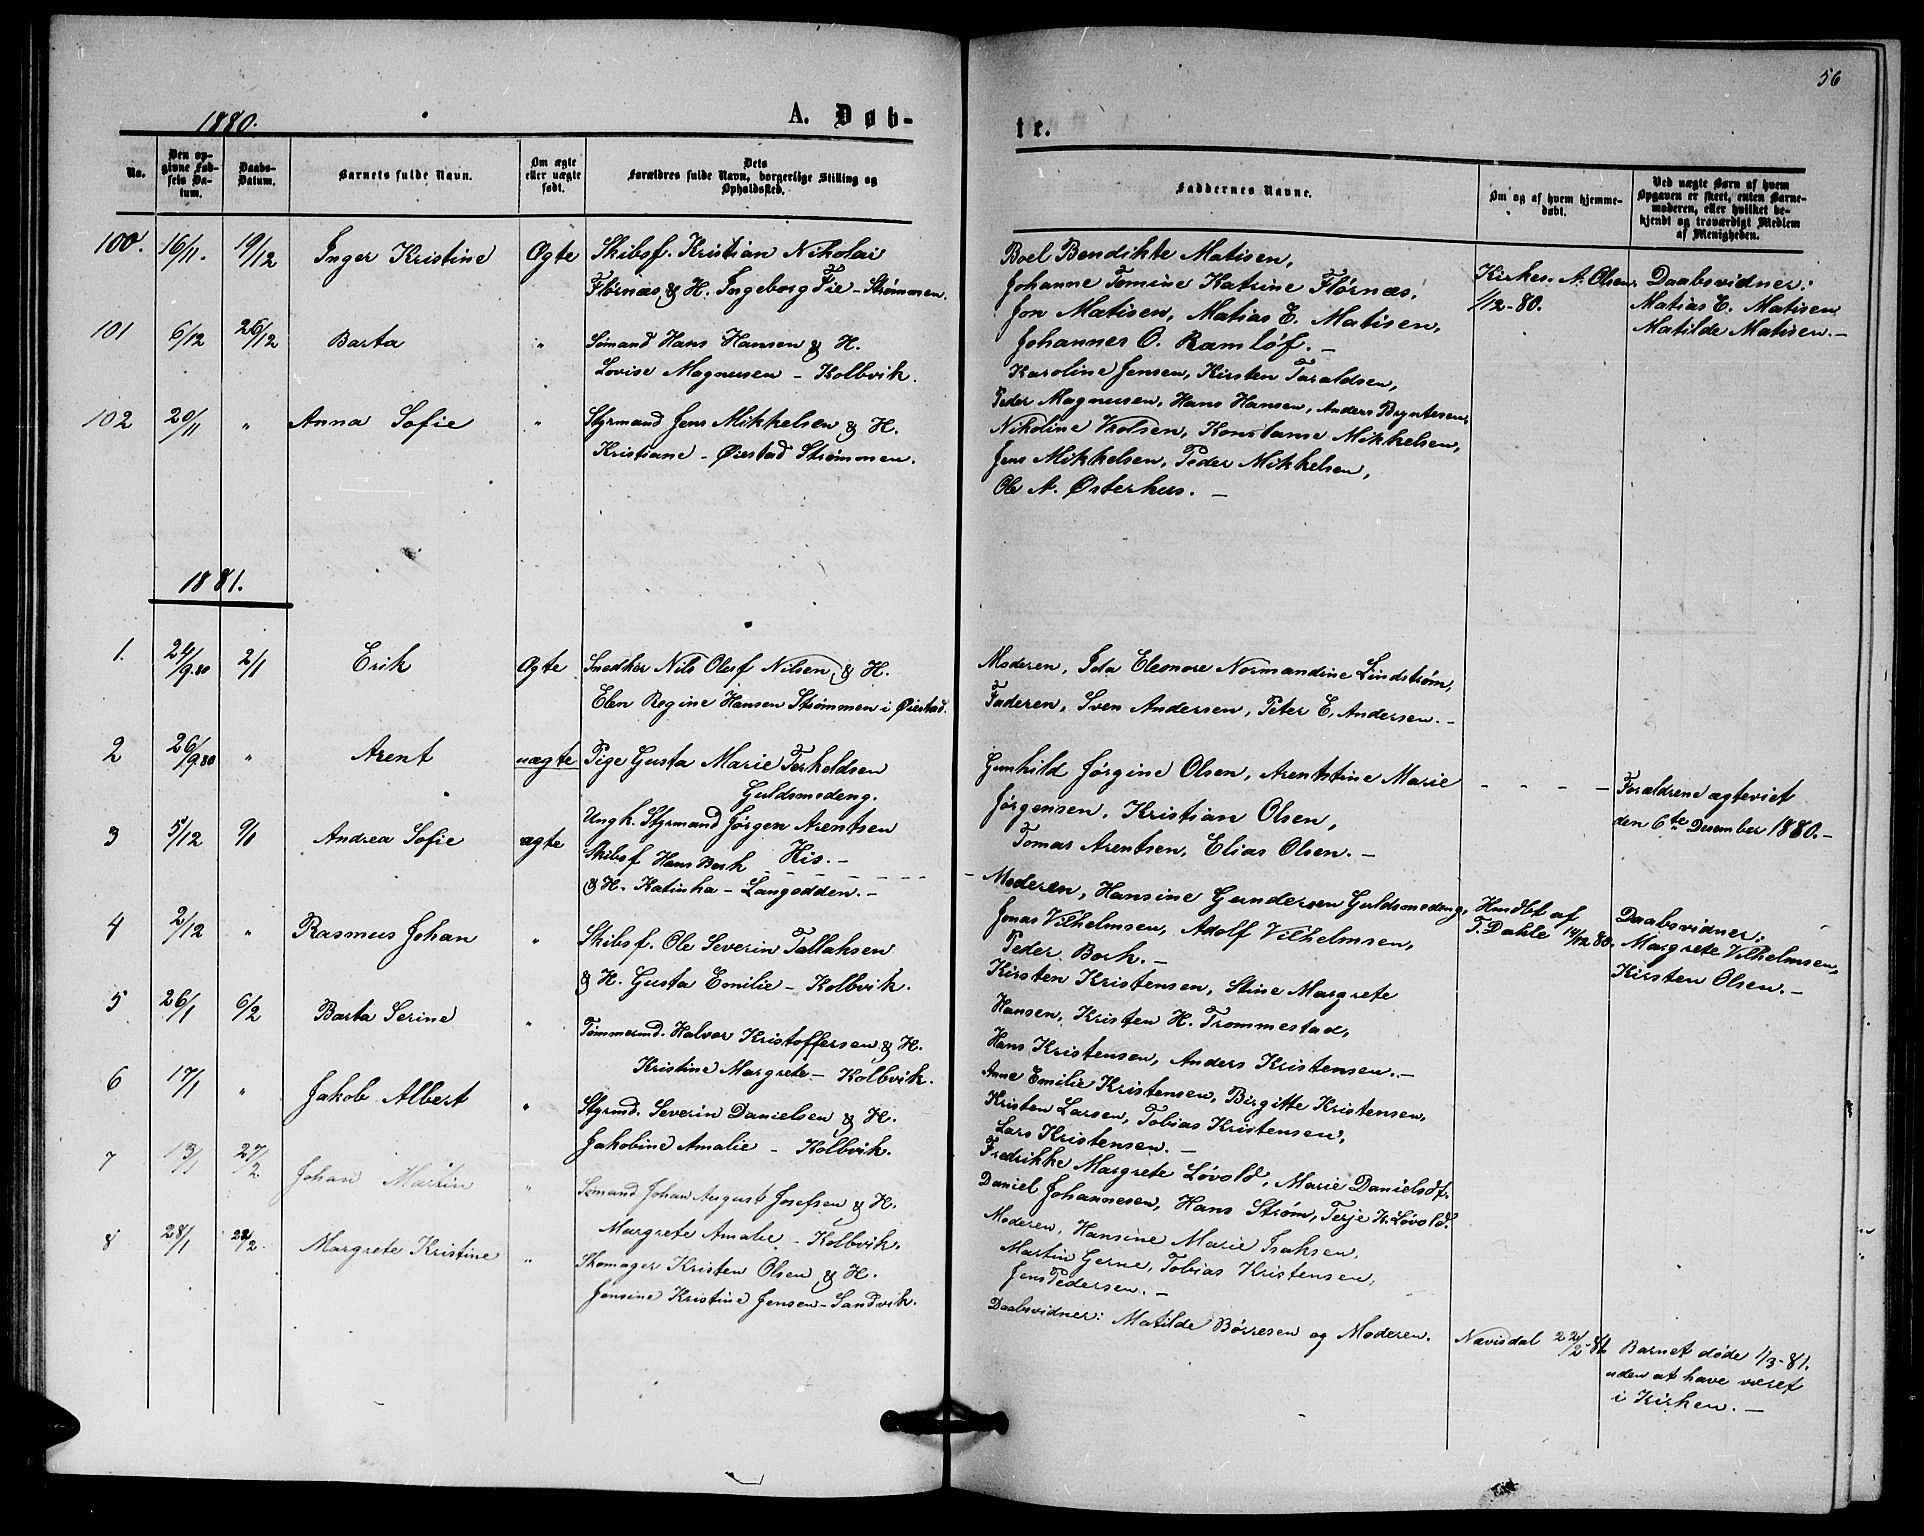 56
1880.
A. Døb-
te.
No.
Den op-
givne Fød-
sels Da-
tum.
Daabs-
Datum.
Barnets fulde Navn.
Om ægte
eller uægte
født.
Dets
Forældres fulde Navn, borgerlige Stilling og
Opholdssted.
Faddernes Navne.
Om og af hvem hjemme-
døbt.
Ved uægte Børn af hvem
Opgaven er skeet, enten Barne-
moderen, eller hvilket be-
kjendt og troværdigt Medlem
af Menigheden.
100. 16/11. 19/12 Inger Kristine Ægte Skibsf. Kristian Nikolai
Flørnæs, & H. Ingeborg Fie - Strømmen.
Boel Bendikte Matisen,
Johanne Tomine Katrine Flørnæs,
Jon Matisen, Matias E. Matisen,
Johannes O. Ramløf. -
Kirkes. A. Olsen,
1/12-80.
Daabsvidner:
Matias E. Matisen
Matilde Matisen. -
101 6/12 26/12 Barta " Sømand Hans Hansen & H.
Lovise Magnusen - Kolbvik.
Karoline Jensen, Kirsten Taraldsen,
Peder Magnusen, Hans Hansen, Anders Bryntesen,
102 20/11 " Anna Sofie " Styrmand Jens Mikkelsen & H.
Kristiane - Øiestad Strømmen.
Nikoline Olsen, Konstanse Mikkelsen,
Jens Mikkelsen, Peder Mikkelsen,
Ole A. Østerhus. -
1881.
1. 24/9.80 2/1 Erik Ægte Snedker Nils Oluf Nilsen, & H.
Elen Regine Hansen Strømmen i Øiestad.
Moderen, Ida Eleonore Normandine Lindstrøm,
Faderen, Sven Andersen, Peter E. Andersen. -
2 26/9 80 " Arent uægte Pige Gusta Marie Terkeldsen
Guldsmedeng.
Ungk. Styrmand Jørgen Arentsen
His. -
Gunhild Jørgine Olsen, Arentstine Marie
Jørgensen, Kristian Olsen,
Tomas Arentsen, Elias Olsen. -
- - - -
Forældrene ægteviet
den 6te Desember 1880. -
3 5/12 9/1 Andrea Sofie ægte Skibsf Hans Bork
& H. Katinka - Langodden. -
Moderen, Hansine Gundersen Guldsmedeng,
Jonas Vilhelmsen, Adolf Vilhelmsen,
Peder Bork. -
Hmdbt af
T. Dahle 14/12 80.
Daabsvidner:
Margrete Vilhelmsen,
Kirsten Olsen. -
4 2/12 " Rasmus Johan " Skibsf. Ole Severin Tallaksen
& H. Gusta Emilie - Kolbvik.
Kirsten Kristensen, Stine Margrete
Hansen, Kristen H. Trommestad,
Hans Kristensen, Anders Kristensen. -
5 26/1 6/2 Barta Serine " Tømmermd. Halvor Kristoffersen & H.
Kristine Margrete - Kolbvik.
Anne Emilie Kristensen, Birgitte Kristensen,
Kristen Larsen, Tobias Kristensen,
Lars Kristensen. -
6 17/1 " Jakob Albert " Styrmd. Severin Danielsen & H.
Jakobine Amalie - Kolbvik.
Fredrikke Margrete Løvold, Marie Danielsdt.
Daniel Johannesen, Hans Strøm, Terje K. Løvold.
7 13/1 27/2 Johan Martin " Sømand Johan August Josefsen & H.
Margrete Amalie - Kolbvik.
Moderen, Hansine Marie Isaksen,
Martin Gerne, Tobias Kristensen,
Jens Pedersen. -
8 28/1 22/2. Margrete Kristine " Skomager Kristen Olsen & H.
Jensine Kristine Jensen - Sandvik.
Daabsvidner: Matilde Børresen og Moderen.
Nævisdal 22/2 81.
Barnet døde 1/3-81.
uden at have været
i Kirken. -